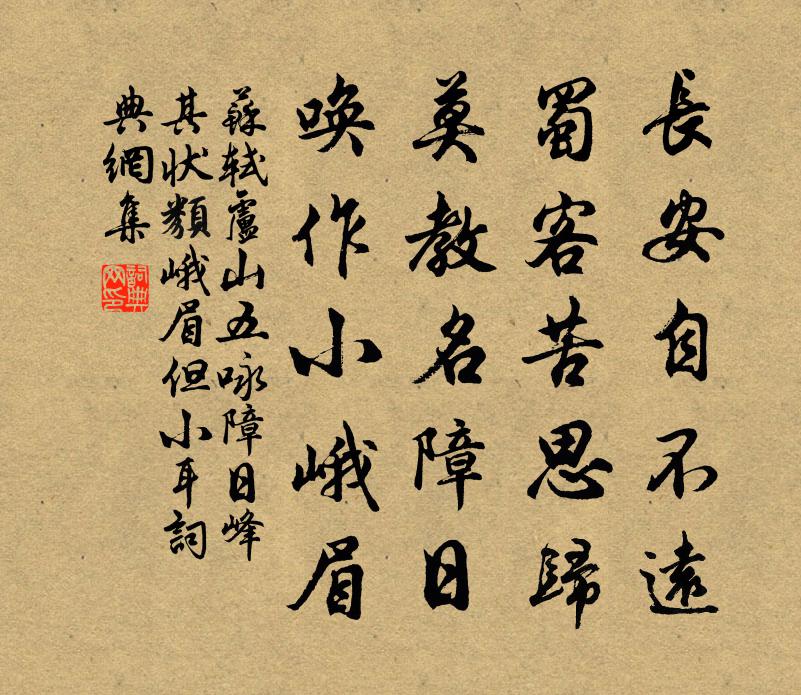 長安自不遠
蜀客苦思歸
莫教名障日
喚作小峨眉
蘇軾廬山五咏障日峰
其狀類峨眉但小耳詞
典網集
詞典网印